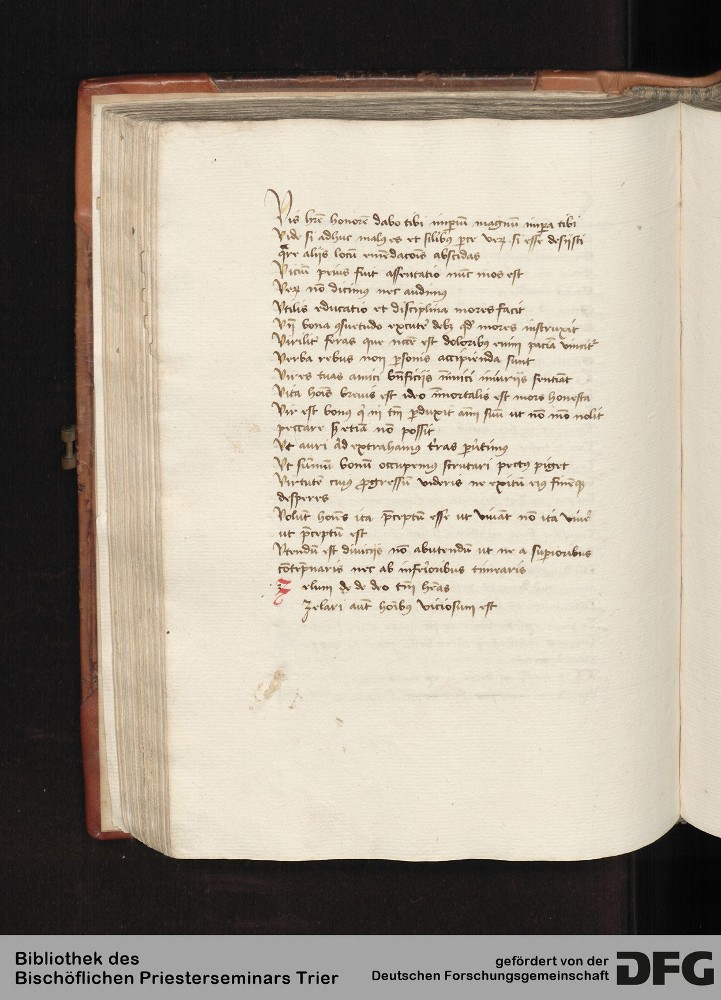 Vis hr̄e honorē dabo tibi imp̄iū magnū imp̄a tibi
Vide si adhuc malus es et silibus p̱ce veꝝ si esse desisti
q̄re aliis locū emēdac̄ois abscidas
Viciū prius fuit assentatio nūc mos est
Veꝝ nō dicimus nec audimus
Vtilis educatio et disciplina mores facit
Vn̄ bona ꝯsuetudo excutẽ debꝫ qd̓ mores instruxit
Virilit̓ feras que nc̄ce est doloribus enim paciā vincit̓
Verba rebus non p̱sonis accipienda sunt
Vires tuas amici bn̄ficiis īimici iniuriis sentiāt
Vita hōis brevis est ideo īmortalis est mors honesta
Vir est bonus q̄ in tm̄ p̱duxit aīm suū ut nō mō nolit
peccare sꝫ etiā nō possit
Vt auri ad extrahamus t̓ras
Vt sūmū bonū occupemus scrutari pectus piget
Virtutē cuius ꝓgressū videris ne exitū eius finēqꝫ
desperes
Volūt hoīes ita p̄ceptū esse ut vivāt nō ita viue̓
ut p̄ceptū est
Vtendū est diviciis nō abutendū ut ne a sup̱ioribus
cōtēpnaris nec ab inferioribus timearis
Zelum de de deo tm̄ hēas
Zelari aūt hoībus viciosum est
Bibliothek des
Bischöflichen Priesterseminars Trier
gefördert von der
Deutschen Forschungsgemeinschaft
DFG